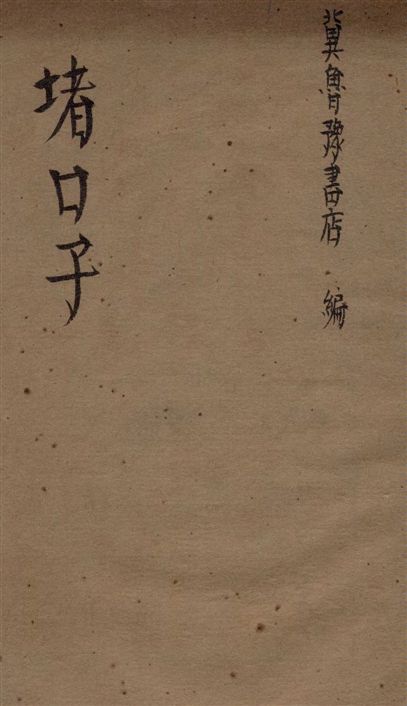 冀魯豫書店 編
堵口子